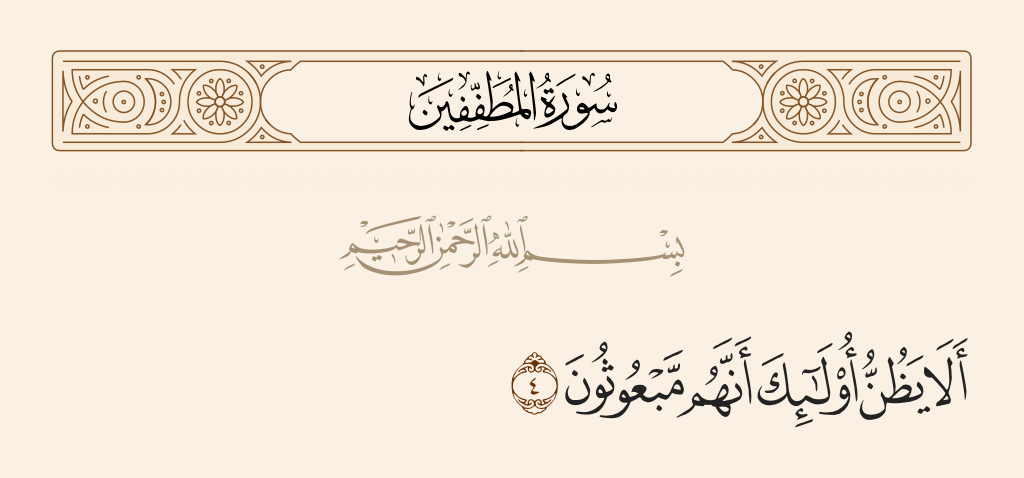 سُورَةُ المُطَفِّفِينَ
بِسْمِ ٱللَّهِ ٱلرَّحْمَٰنِ ٱلرَّحِيمِ
أَلَا يَظُنُّ أُو۟لَـٰٓئِكَ أَنَّهُم مَّبْعُوثُونَ ٤